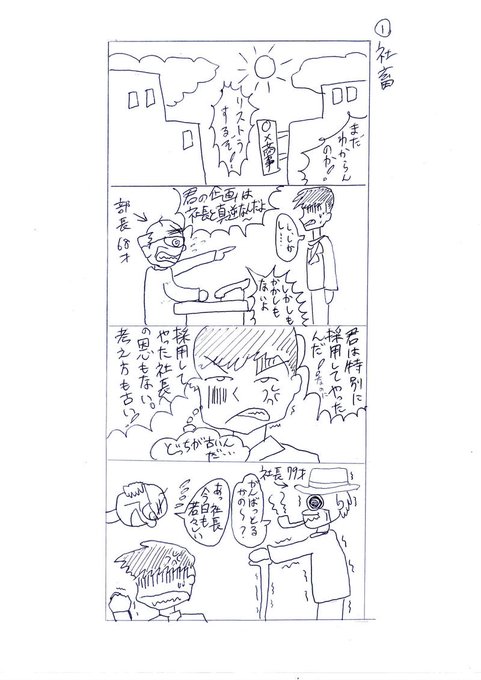 ①
社畜
まだ
わからん
のか!!
リストラ
するぞ!!
〇×商事
し、しか
し…
君の企画は
社長と真逆なんだよ
部長68才
しかしも
かかしも
ないよ
君は特別に
採用してやった
んだ!
採用して
やった社長
の恩もない。
考え方も古い!
どっちが古いん
だ…
社長79才
がんばっとる
かの〜?
あっ社長
今日も
若々しい